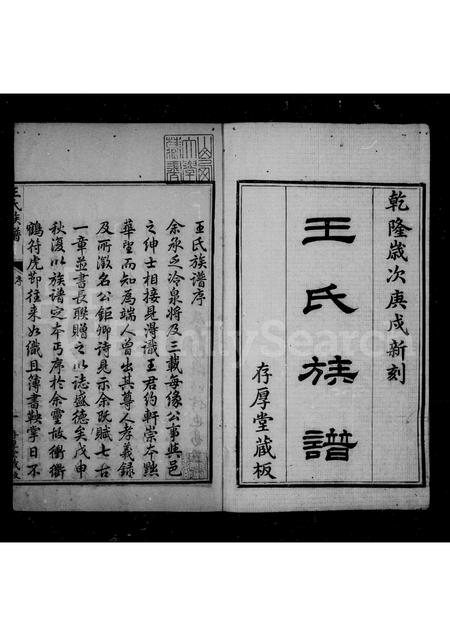 乾隆歲次庚戌新刻
王氏族譜
存厚堂藏板
王氏族譜序
余承乏冷泉將及三載每緣公事與邑
之紳士相接見得識王君約軒崇本黜
華望而知為端人曾出其尊人孝義錄
及所徵名公鉅卿詩見示余既賦七古
一章並書長聯贈之以誌盛德矣戊申
秋復以族譜定本丐序於余靈攸衝衢
鶴符虎節往來如織且簿書鞅掌日不
王氏族譜
序
FamilySearch